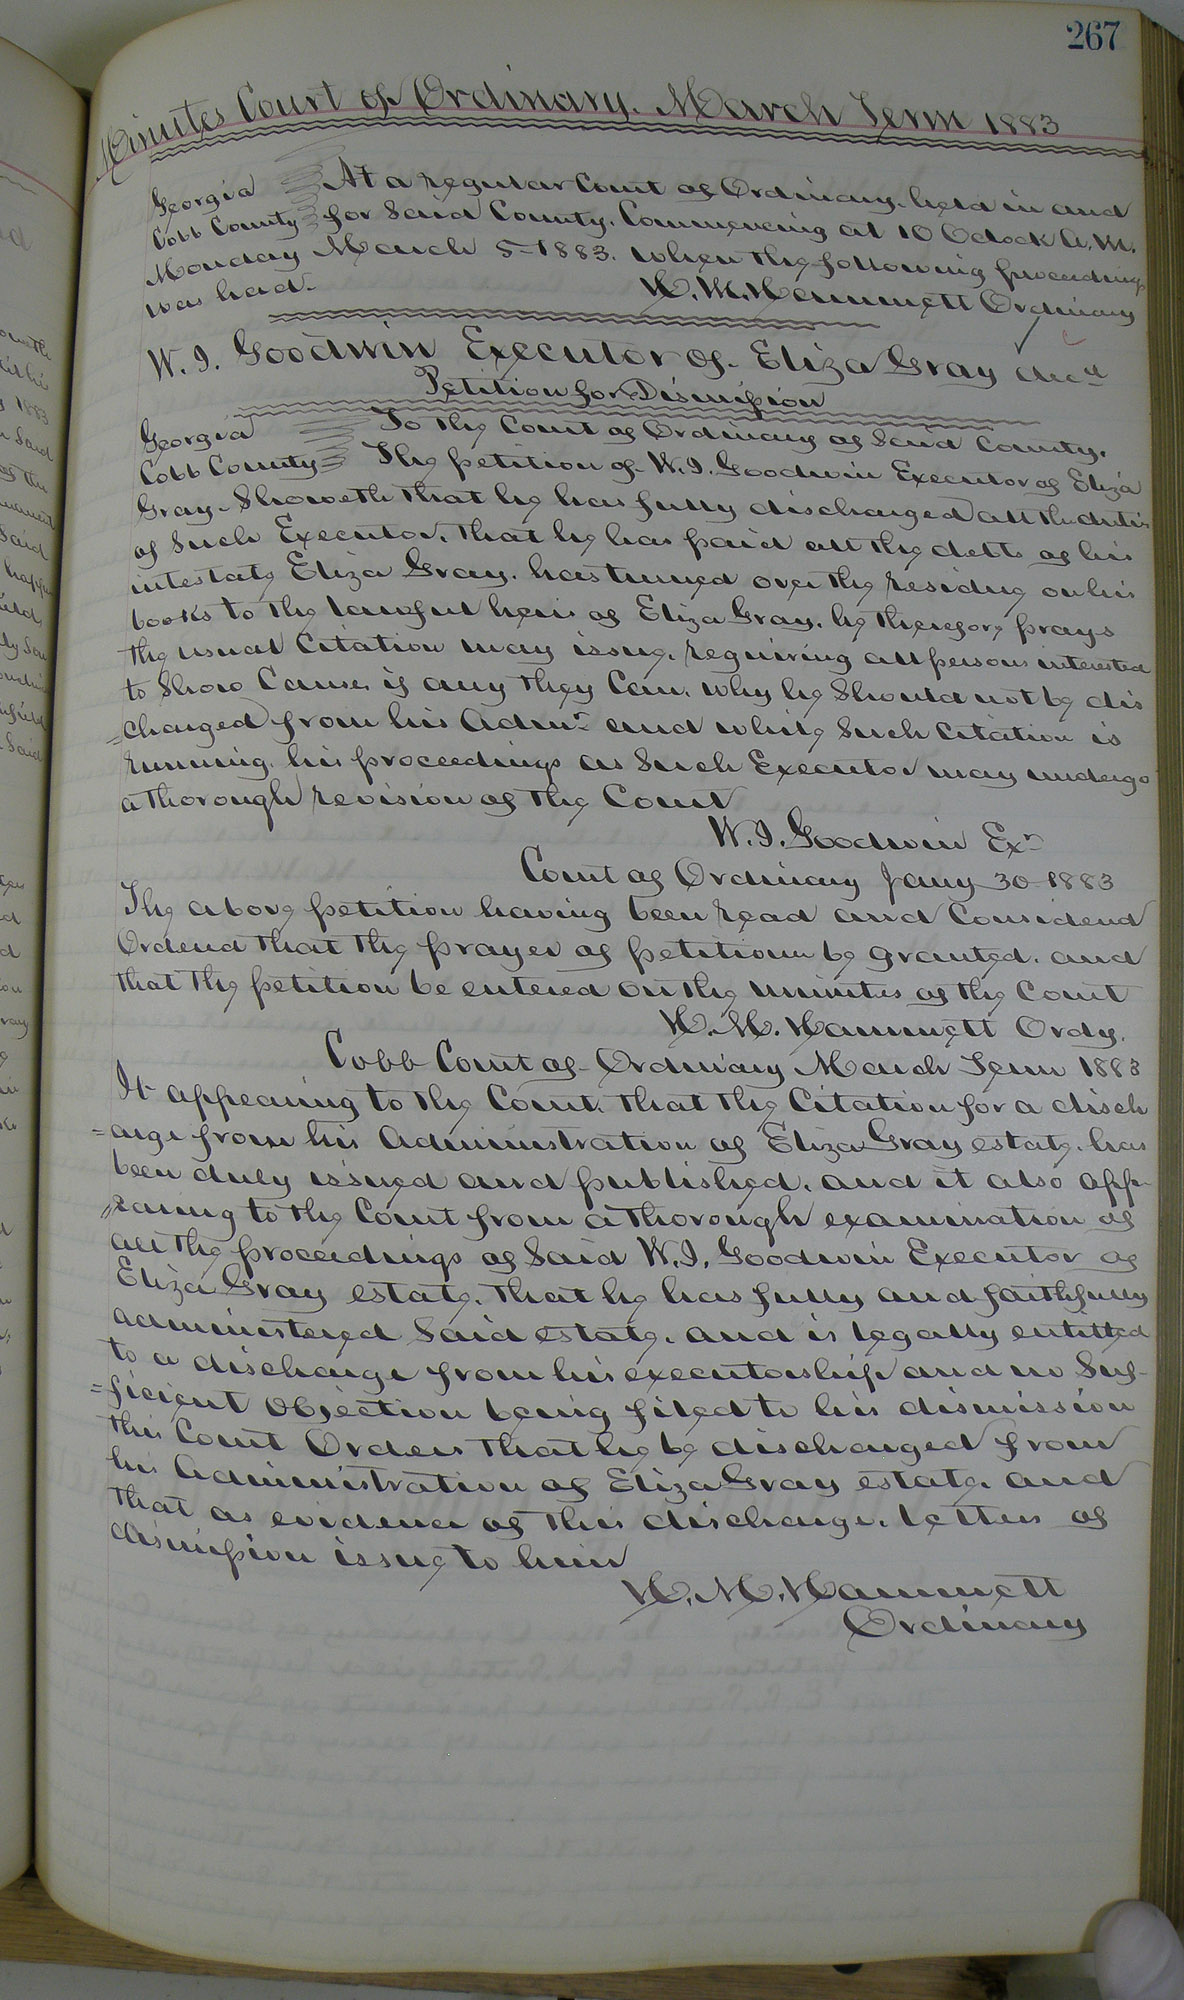 267
Minutes Court of Ordinary. March Term 1883
Georgia At a regular Court of Ordinary, held in and
Cobb County for Said County, Commencing at 10 Oclock A.M.
Monday March 5-1883. when the following proceedings
was had. H. M. Hammett Ordinary
W. I. Goodwin Executor of Eliza Gray decd
Petition for Dismission
Georgia To the Court of Ordinary of Said County.
Cobb County The petition of W. I. Goodwin Executor of Eliza
Gray. Showeth that he has fully discharged all the duties
of Such Executor, that he has paid all the debts of his
intestate Eliza Gray. has turned over the residue on his
books to the lawful heirs of Eliza Gray. he therefore prays
the usual Citation may issue, requiring all persons interested
to Show Cause, if any they Can, why he Should not be dis
charged from his Admn. and while Such Citation is
running, his proceedings as Such Executor may undergo
a thorough revision of the Court
W. I. Goodwin Exr
Court of Ordinary Jany 30-1883
The above petition having been read and Considerd
Orderd that the prayer of petitioner be granted. and
that the petition be entered on the minutes of the Court
H. M. Hammett Ordy.
Cobb Court of Ordinary March Term 1883
It appearing to the Court, that the Citation for a disch
=arge from his Administration of Eliza Gray estate. has
been duly issued and published, and it also appe
=earing to the Court from a thorough examination of
all the proceedings of Said W. I. Goodwin Executor of
Eliza Gray estate, that he has fully and faithfully
administered Said estate, and is legally entitled
to a discharge from his executorship and no Suf-
=ficient Objection being filed to his dismission
this Court Orders that he be discharged from
his Administration of Eliza Gray estate, and
that as evidence of this discharge, letters of
dismission issue to him
H. M. Hammett
Ordinary